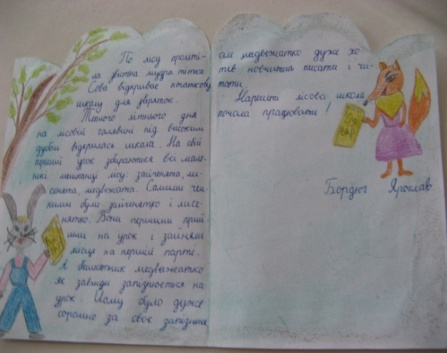 По лісу пролеті-
ла звістка мудра тітка
Сова відкриває початкову
школу для звіряток.
Теплого літнього дня
на лісовій галявині під високим
дубом відкрилась школа. На свій
перший урок збираються всі мале-
нькі мешканці лісу: зайченята, ли-
сенята, ведмежата. Самими чем-
ними було зайченятко і лисе-
нятко. Вони першими прий
шли на урок і зайняли
місця на першій парті.
А вайлютник медвежатко
як завжди запізнюється на
урок. Йому було дуже
соромно за своє запізнення
але медвежатко дуже хо-
тів навчитися писати і чи-
тати.
Нарешті лісова школа
почала працювати!
Бордюг Ярослав